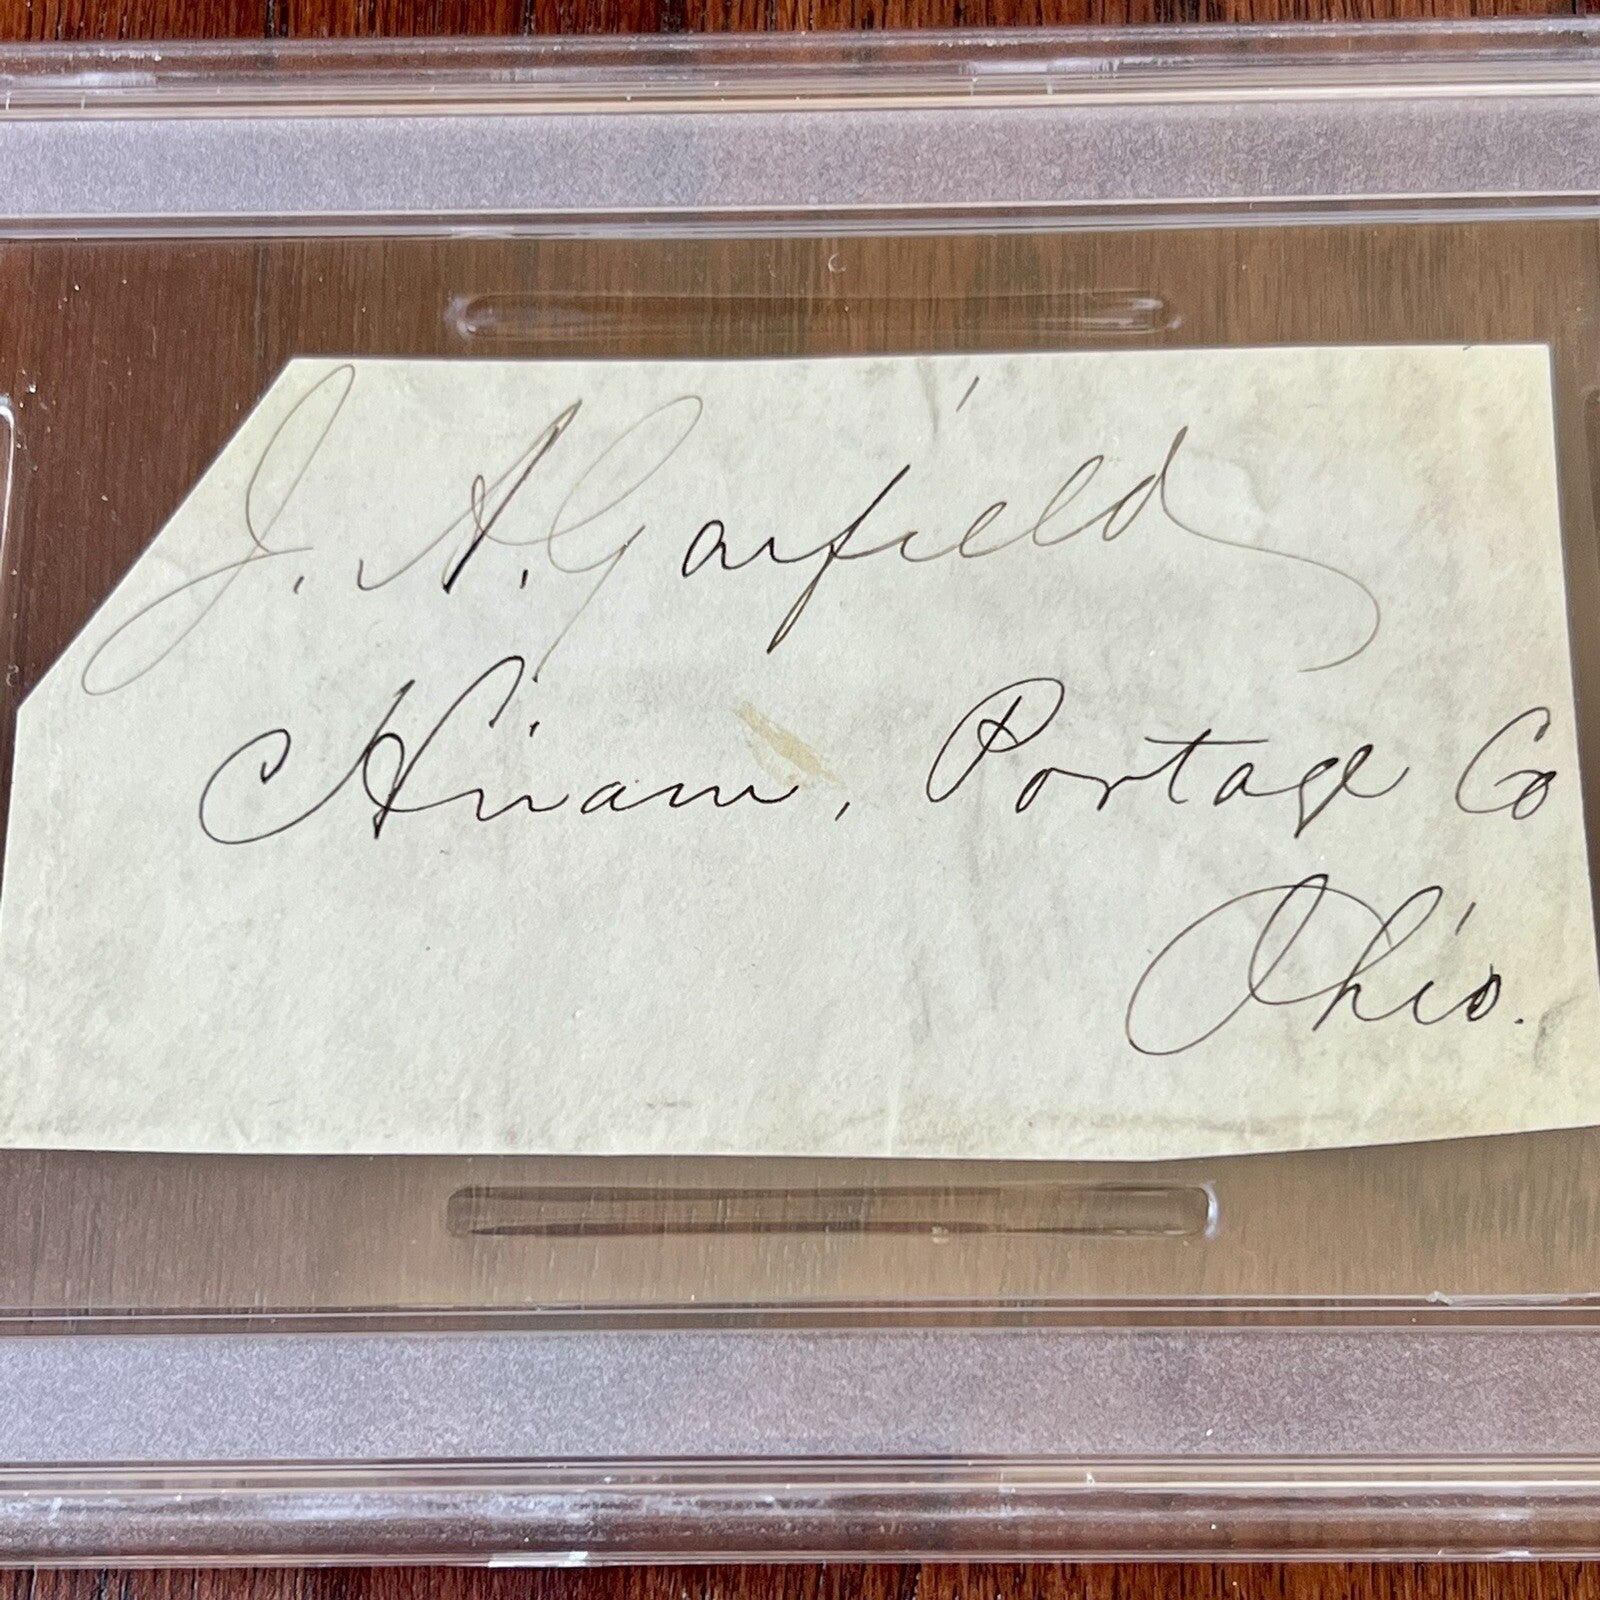 J. A. Garfield
Hiram, Portage Co
Ohio.